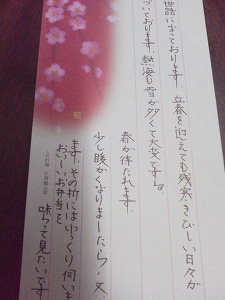 世話になっております。立春を迎えても残寒きびしい日々が
づいております。熱海も雪が多くて大変です。
春が待たれます。
少し暖かくなりましたら、又
ます。その折にはゆっくり伺いま
おいしいお弁当を
味って見たいです